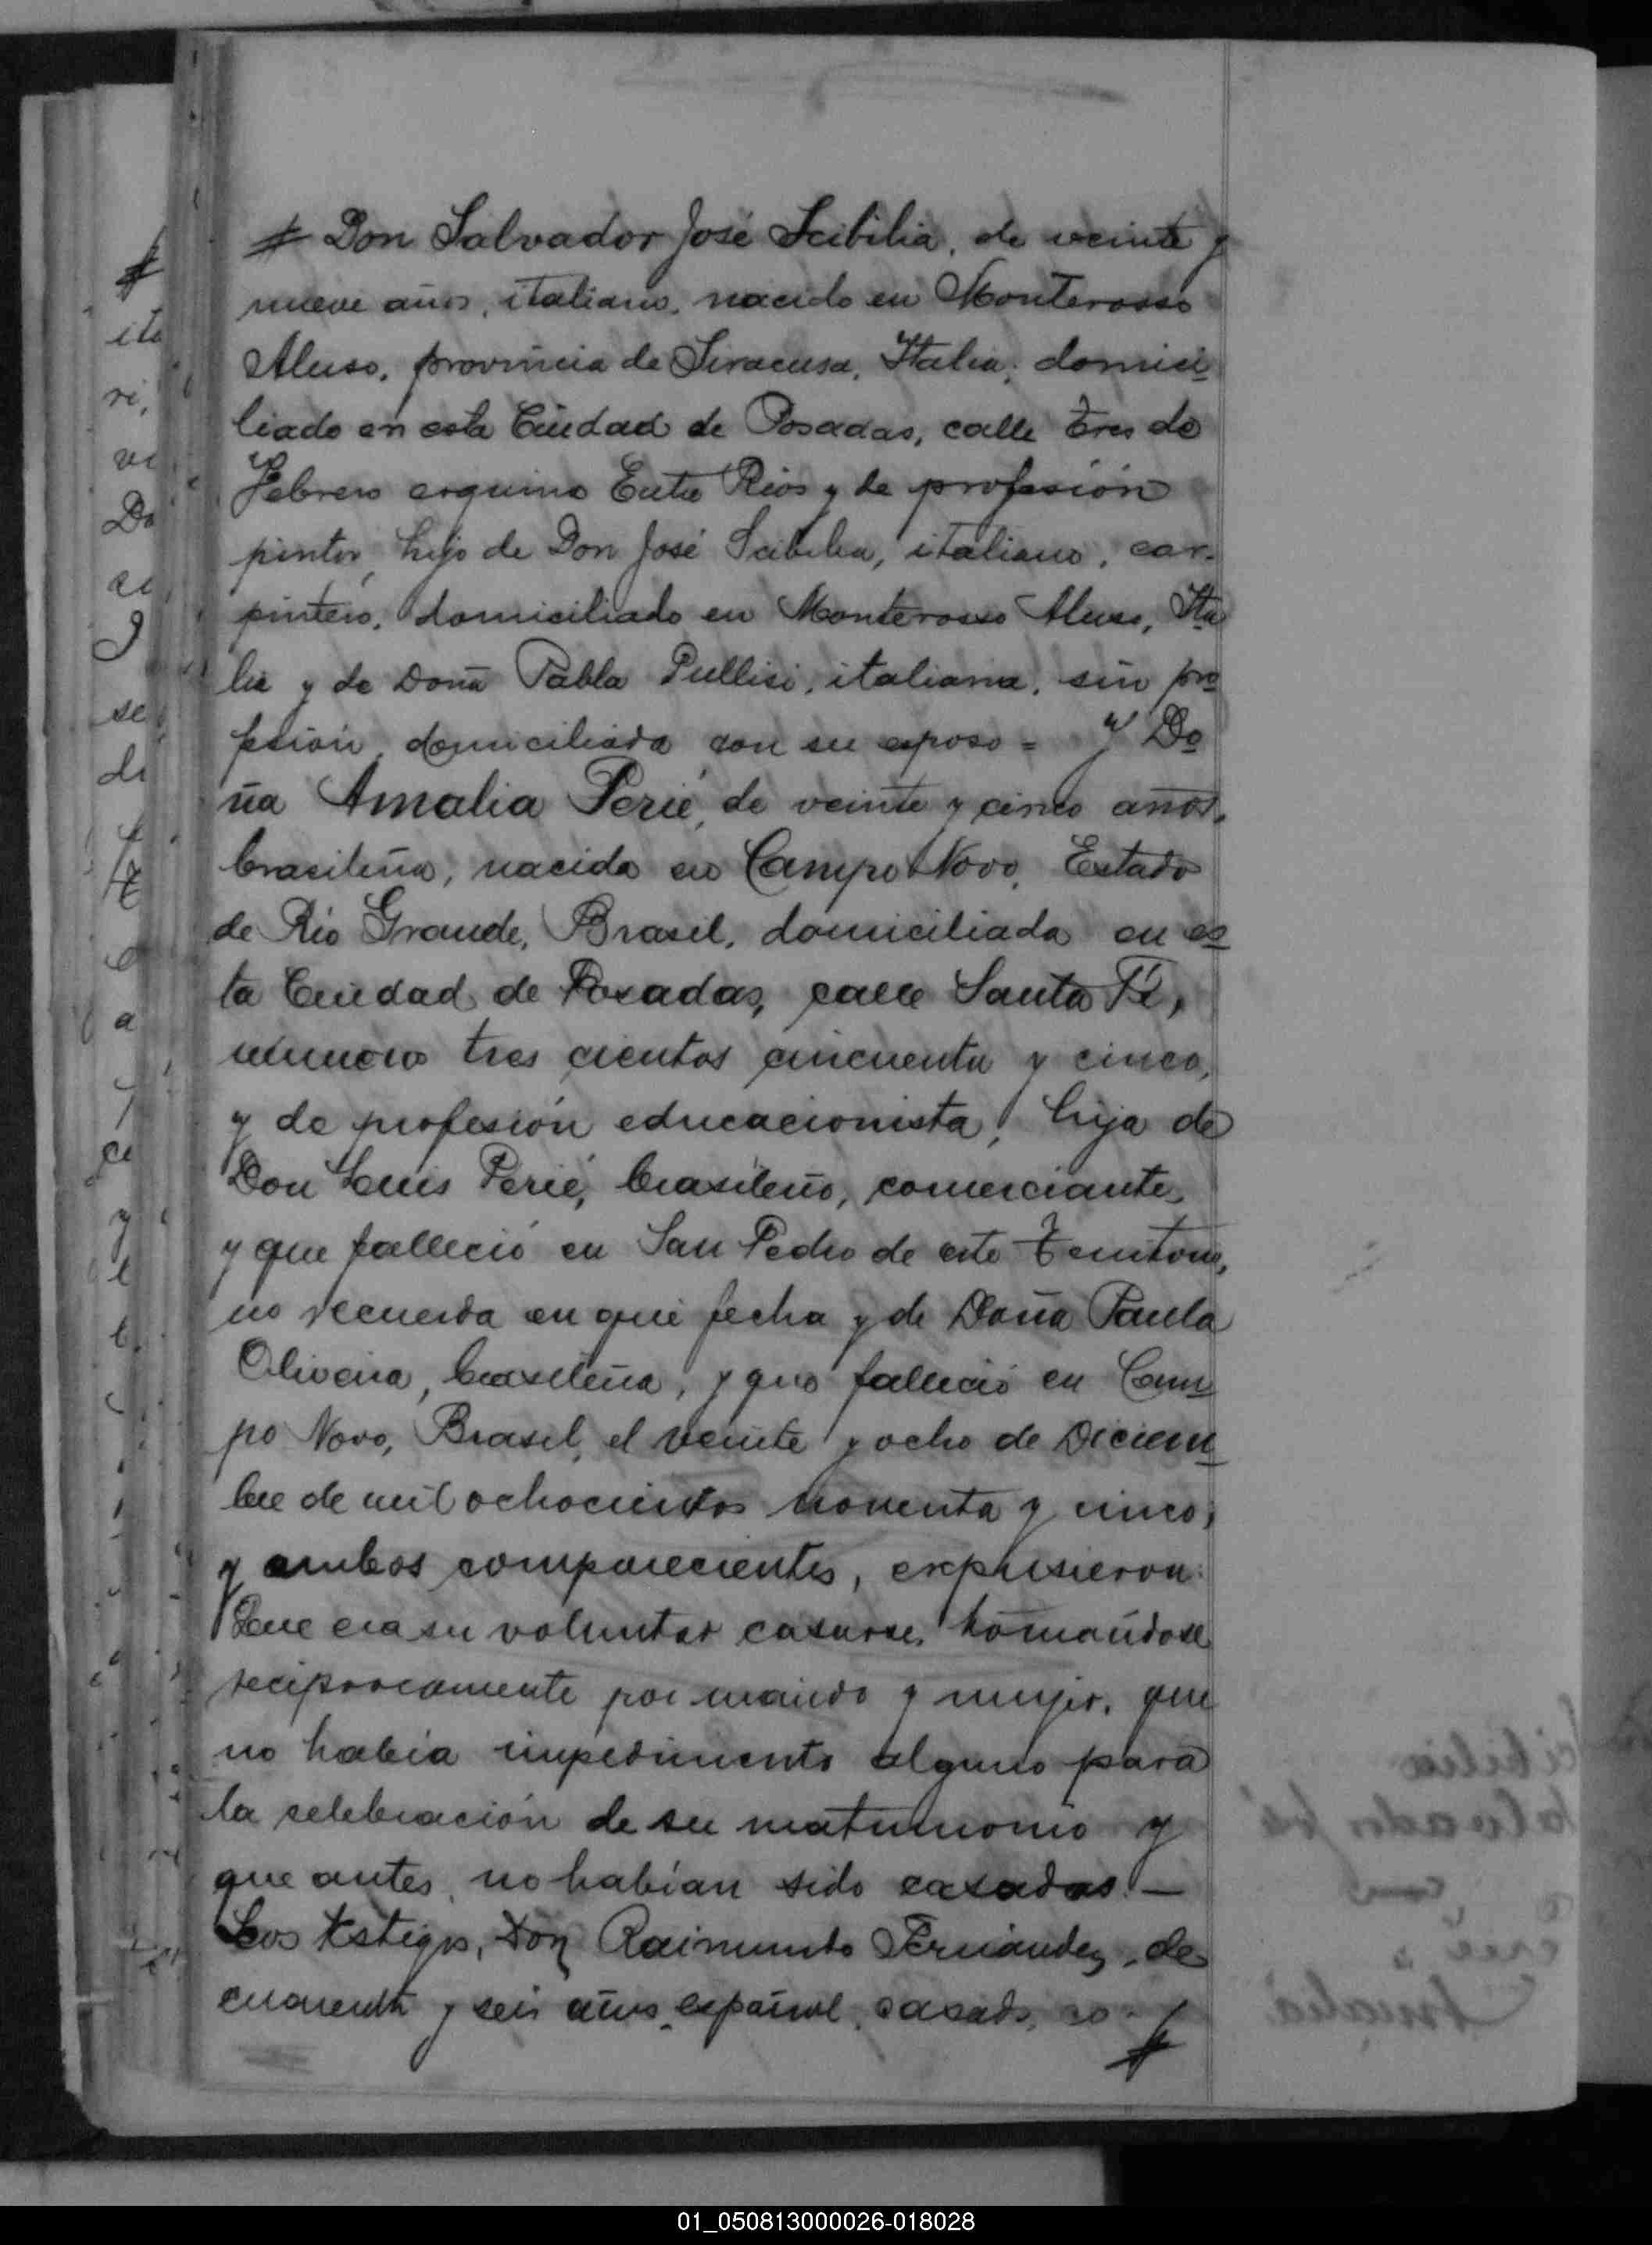 # Don Salvador José Scibilia, de veinte y
nueve años, italiano, nacido en Monterosso
Aluso, provincia de Siracusa, Italia, domici
liado en esta Ciudad de Posadas, calle tres de
Febrero esquina Entre Rios y de profesión
pintor, hijo de Don José Scibilia, italiano, car-
pintero, domiciliado en Monterosso Aluso, Ita
lia y de Doña Pabla Pullisi, italiana, sin pro
fesión, domiciliada con su esposo = y Do
ña Amalia Perié, de veinte y cinco años,
brasileña, nacida en Campo Novo, Estado
de Rio Grande, Brasil, domiciliada en es
ta Ciudad de Posadas, calle Santa Fé,
número tres cientos cincuenta y cinco,
y de profesión educacionista, hija de
Don Luis Perié, brasileño, comerciante,
y que falleció en San Pedro de este Territorio,
no recuerda en qué fecha y de Doña Paula
Oliveira, brasileña, y que falleció en Cam
po Novo, Brasil, el veinte y ocho de Diciem
bre de mil ochocientos noventa y cinco;
y ambos comparecientes, expusieron:
Que era su voluntad casarse, tomándose
reciprocamente por marido y mujer, que
no había impedimento alguno para
la celebración de su matrimonio y
que antes, no habían sido casados.—
Los testigos, Don Raimundo Fernández, de
cuarenta y seis años, español, casado, co-
#
01_050813000026-018028